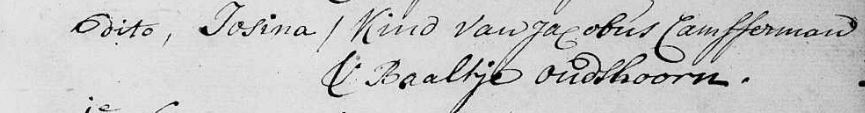 Odito, Josina / Kind van Jacobus Camfferman
& Baaltje Oudshoorn.